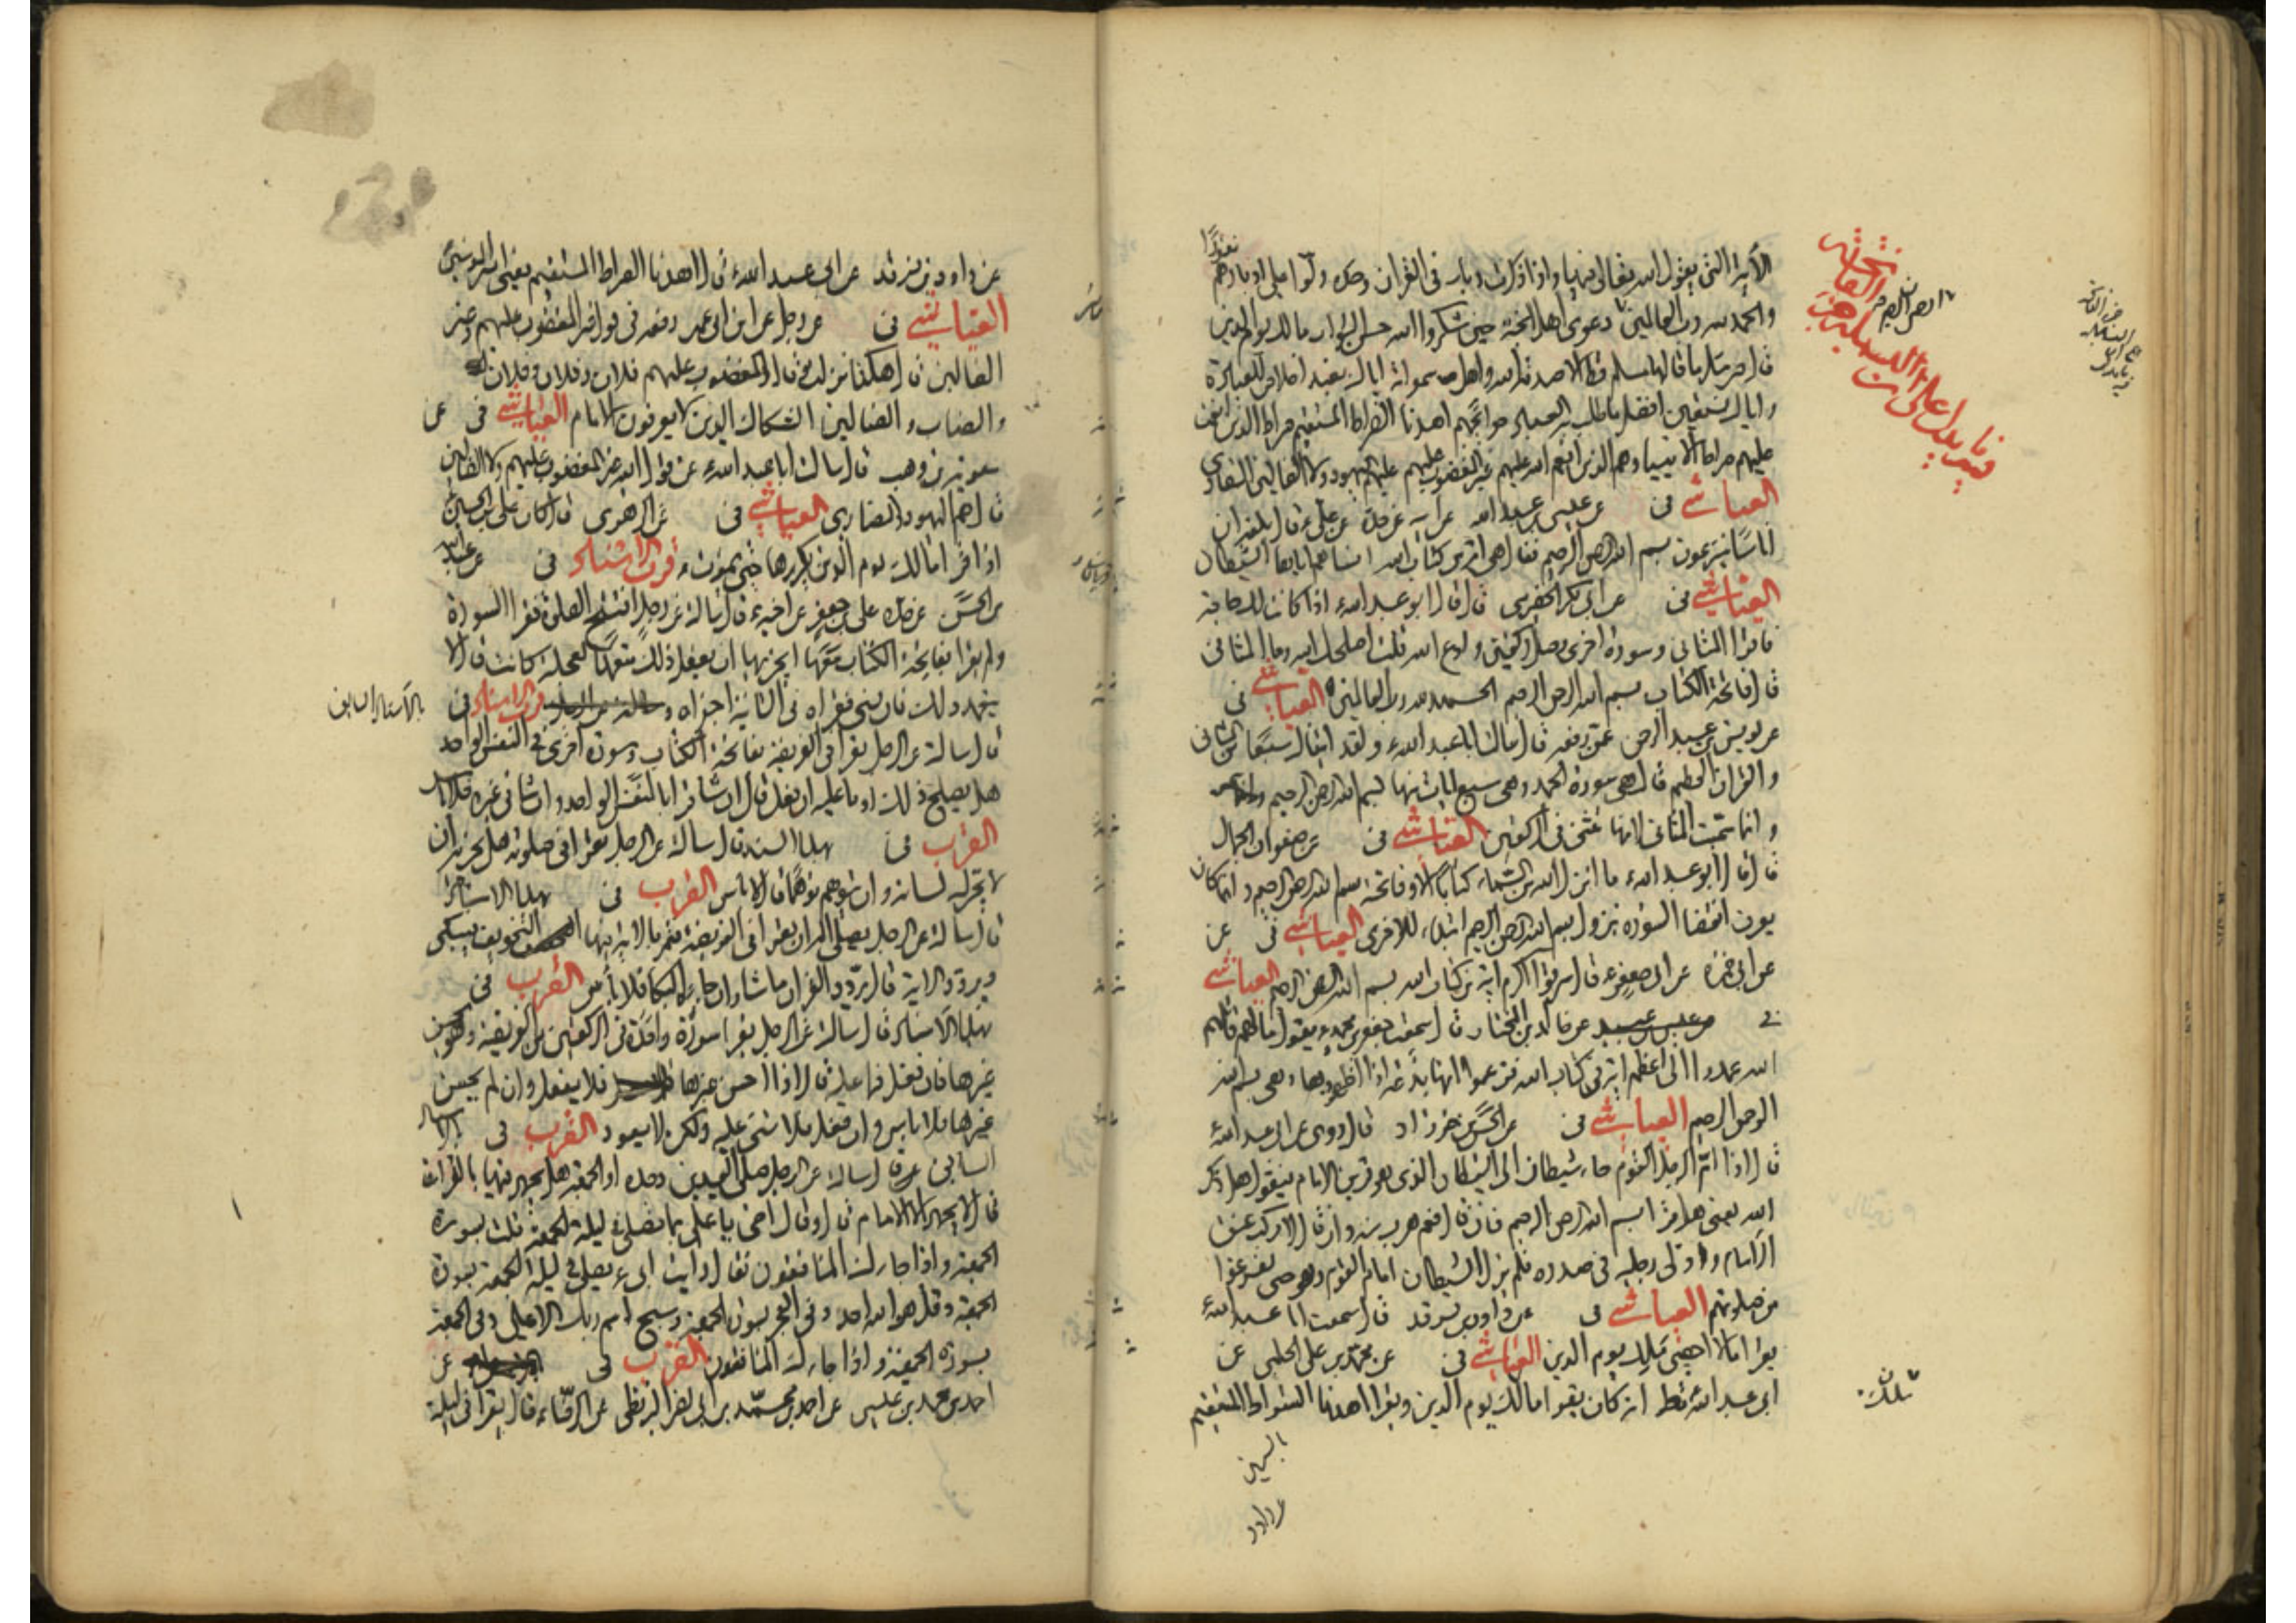 الآية التي يقول الله تعالى فيها واذا ذكرت ربك في القران وحده ولّوا على ادبارهم نفورًا
والحمد لله رب العالمين دعوى اهل الجنة حين شكروا الله حسن الثواب مالك يوم الدين
قال جبرئيل ما قالها مسلم قط الا صدقه الله واهل سمواته اياك نعبد اخلاص للعبادة
واياك نستعين افضل ما طلب به العباد حوائجهم اهدنا الصراط المستقيم صراط الذين انعمت
عليهم صراط الانبياء وهم الذين انعم الله عليهم غير المغضوب عليهم اليهود ولا الضالين النصارى
العياشي في عن عيسى بن عبد الله عن ابيه عن جده عن علي ع قال بلغه ان
اناسًا ينزعون بسم الله الرحمن الرحيم فقال هي اية من كتاب الله انساهم اياها الشيطان
العياشي في عن ابي بكر الحضرمي قال قال ابو عبد الله ع اذا كانت لك حاجة
فاقرا المثاني وسورة اخرى وصل ركعتين وادع الله قلت اصلحك الله وما المثاني
قال فاتحة الكتاب بسم الله الرحمن الرحيم الحمد لله رب العالمين العياشي في
عن يونس بن عبد الرحمن عمن رفعه قال سالت ابا عبد الله ع ولقد اتيناك سبعًا من المثاني
والقران العظيم قال هي سورة الحمد وهي سبع ايات منها بسم الله الرحمن الرحيم
وانما سميت المثاني لانها تثنى في الركعتين العياشي في عن صفوان الجمال
قال قال ابو عبد الله ع ما انزل الله من السماء كتابًا الا وفاتحته بسم الله الرحمن الرحيم وانما كان
يعرف انقضاء السورة بنزول بسم الله الرحمن الرحيم ابتداء للاخرى العياشي في عن
عن ابي حمزة عن ابي جعفر ع قال سرقوا اكرم اية من كتاب الله بسم الله الرحمن الرحيم العياشي
في عن خالد بن المختار قال سمعت جعفر بن محمد ع يقول ما لهم قاتلهم
الله عمدوا الى اعظم اية في كتاب الله فزعموا انها بدعة اذا اظهروها وهي بسم الله
الرحمن الرحيم العياشي في عن الحسن بن خرزاد قال روى عن ابي عبد الله ع
قال اذا امّ الرجل القوم جاء شيطان الى الشيطان الذي هو قرين الامام فيقول هل ذكر
الله يعني هل قرا بسم الله الرحمن الرحيم فان قال نعم هرب منه وان قال لا ركب عنق
الامام ودلى رجليه في صدره فلم يزل الشيطان امام القوم حتى يفرغوا
من صلوتهم العياشي في عن داود بن فرقد قال سمعت ابا عبد الله ع
يقرا ما لا احصي ملك يوم الدين العياشي في عن محمد بن علي الحلبي عن
ابي عبد الله ع انه كان يقرا مالك يوم الدين ويقرا اهدنا الصراط المستقيم
عن داود بن فرقد عن ابي عبد الله ع قال اهدنا الصراط المستقيم يعني امير المؤمنين
العياشي في عن رجل عن ابن ابي عمير رفعه في قوله غير المغضوب عليهم وغير
الضالين قال هكذا نزلت قال المغضوب عليهم فلان وفلان وفلان
والنصاب والضالين الشكاك الذين لا يعرفون الامام العياشي في عن
معوية بن وهب قال سالت ابا عبد الله ع عن قول الله غير المغضوب عليهم ولا الضالين
قال هم اليهود والنصارى العياشي في عن الزهري قال كان علي بن الحسين
اذا قرا مالك يوم الدين يكررها حتى يموت قرب الاسناد في عن عبد الله
بن الحسن عن جده علي بن جعفر عن اخيه ع قال سالته عن رجل افتتح الصلوة فقرا السورة
ولم يقرا بفاتحة الكتاب معها ايجزيه ان يفعل ذلك متعمدًا لعجلة كانت قال لا
يتعمد ذلك فان نسي فقراه في الثانية اجزاه قرب الاسناد في بالاسناد السابق
قال سالته عن الرجل يقرا في الفريضة بفاتحة الكتاب وسورة اخرى في النفس الواحد
هل يصلح ذلك او ما عليه ان فعل قال ان شاء قرا بالنفس الواحد وان شاء في غيره فلا باس
القرب في بهذا السند قال سالته عن الرجل يقرا في صلوته هل يجزيه ان
لا يحرك لسانه وان يتوهم توهمًا قال لا باس القرب في بهذا الاسناد
قال سالته عن الرجل يصلي له ان يقرا في الفريضة فتمر بالاية فيها التخويف فيبكي
ويردد الاية قال يردد القران ما شاء وان جاءه البكاء فلا باس القرب في
بهذا الاسناد قال سالته عن الرجل يقرا سورة واحدة في الركعتين من الفريضة وهو يحسن
غيرها فان فعل فما عليه قال اذا احسن غيرها فلا يفعل وان لم يحسن
غيرها فلا باس وان فعل فلا شيء عليه ولكن لا يعود القرب في بالاسناد
السابق عن قال سالته عن الرجل صلى العيدين وحده او الجمعة هل يجهر فيها بالقراءة
قال لا يجهر الا الامام قال وقال اخي يا علي بما تصلي في ليلة الجمعة قلت بسورة
الجمعة واذا جاءك المنافقون فقال رايت ابي ع يصلي في ليلة الجمعة بسورة
الجمعة وقل هو الله احد وفي الفجر بسورة الجمعة وسبح اسم ربك الاعلى وفي الجمعة
بسورة الجمعة واذا جاءك المنافقون القرب في عن
احمد بن محمد بن عيسى عن احمد بن محمد بن ابي نصر البزنطي عن الرضا ع قال يقرا في ليلة